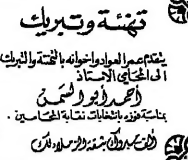 تهنئة وتبريك
يتقدم عمر العواد واخوانه بالتهنئة والتبريك
الى المحامي الاستاذ
أحمد أبو السمن
بمناسبة فوزه بانتخابات نقابة المحامين.
ألف مبروك بثقة الزملاء لك